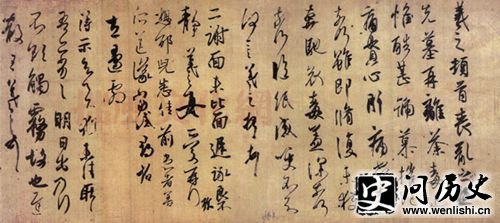 羲之頓首喪亂之
先墓再離荼毒
惟酷甚號慕摧
痛貫心肝痛
奈何雖即脩復未
奔馳哀毒益深奈
奈何臨紙感哽不知
何言羲之頓首
二謝面未比面遲詠良
靜羲之女愛再拜
想邵兒悉佳前患者善
左邊劇
得示知足下猶未佳耿
吾亦劣劣明日出乃行
不欲觸霧故也遲
散王羲之頓首
史问历史
www.wenlishi.cn